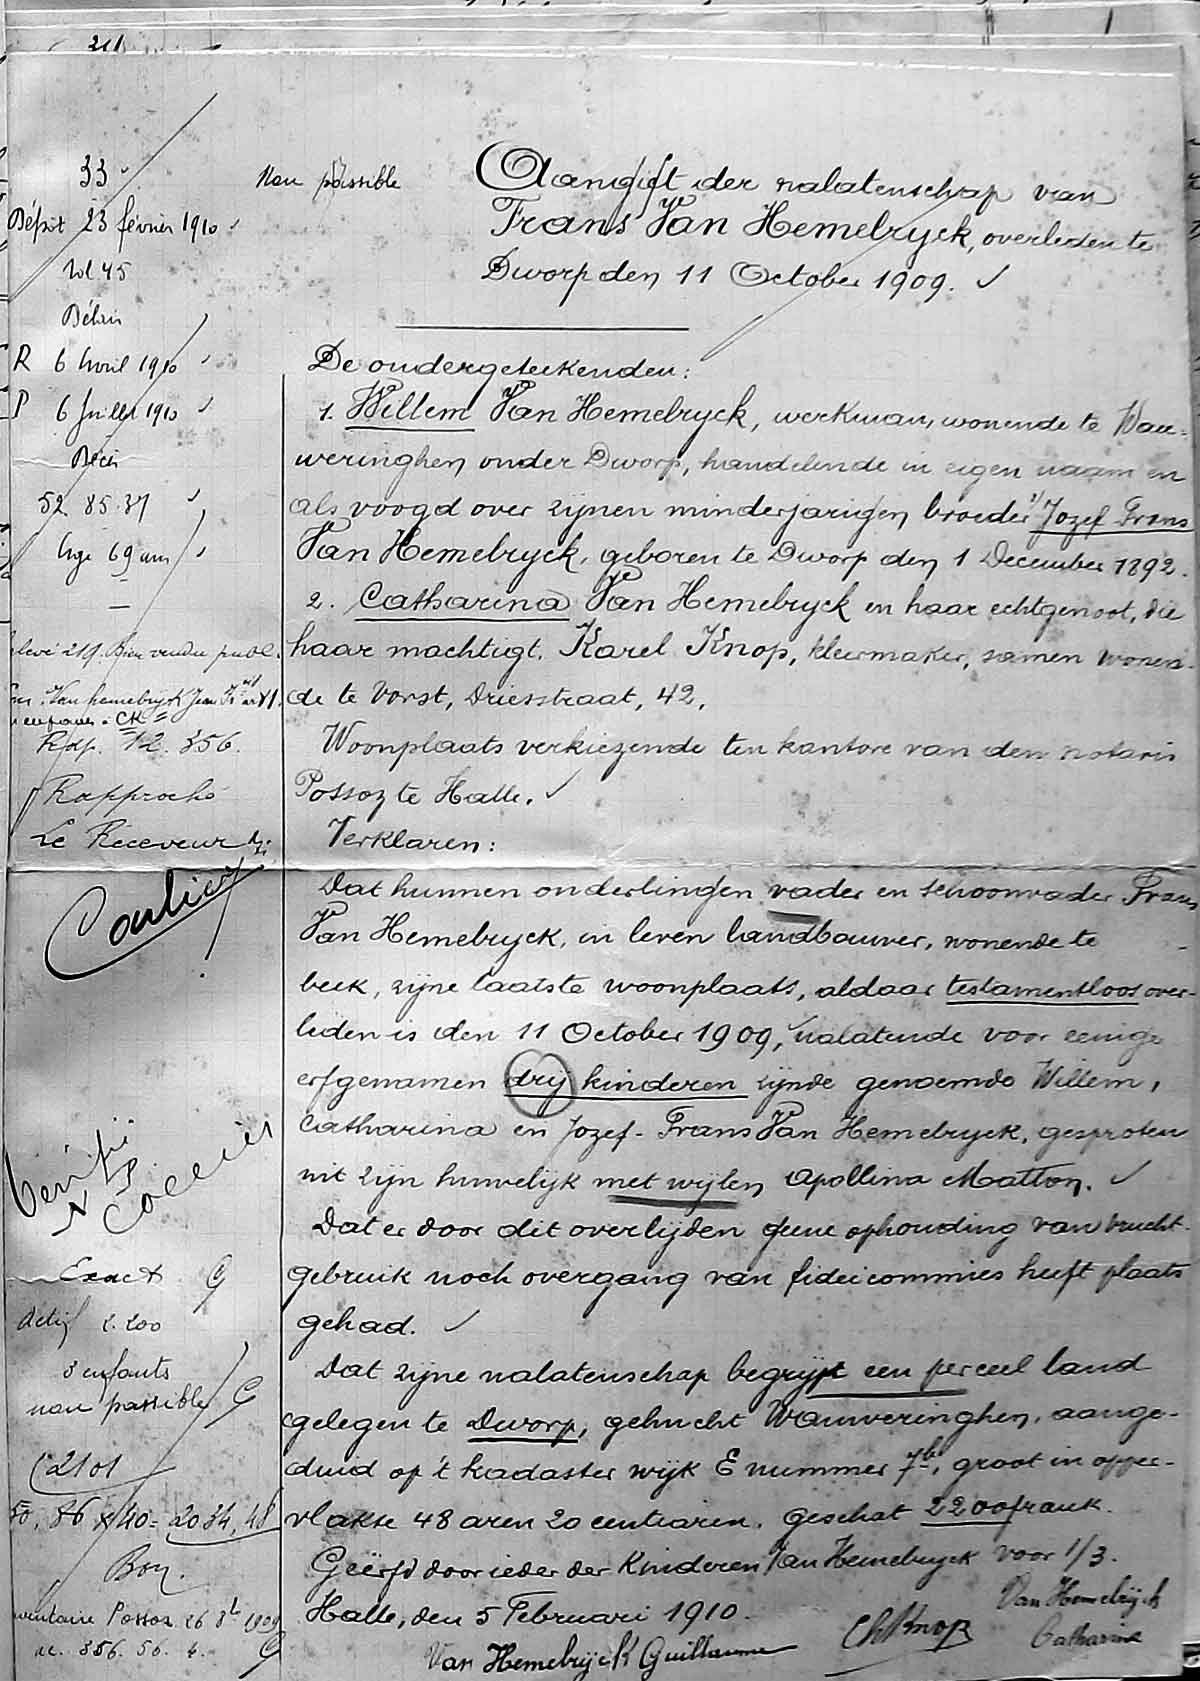 211
33
Non passible
Aangift der nalatenschap van
Frans Van Hemelryck, overleden te
Dworp den 11 October 1909.
Dépôt 23 février 1910
Vol 45
Délais
R 6 Avril 1910
P 6 Juillet 1910
Décès
52 85.37
Age 69 ans
219. Bien vendu publ.
Vanhemelryck Jean
CK
12. 356.
Rapproché
Le Receveur
De ondergeteekenden:
1. Willem Van Hemelryck, werkman, wonende te Wau-
weringhen onder Dworp, handelende in eigen naam en
als voogd over zijnen minderjarigen broeder Jozef Frans
Van Hemelryck, geboren te Dworp den 1 December 1892.
2. Catharina Van Hemelryck en haar echtgenoot, die
haar machtigt, Karel Knop, kleermaker, samen wonen-
de te Vorst, Driesstraat, 42,
Woonplaats verkiezende ten kantore van den notaris
Possoz te Halle.
Verklaren:
Dat hunnen onderlingen vader en schoonvader Frans
Van Hemelryck, in leven landbouwer, wonende te
beek, zijne laatste woonplaats, aldaar testamentloos over-
leden is den 11 October 1909, nalatende voor eenige
erfgenamen drij kinderen zijnde genoemde Willem,
Catharina en Jozef-Frans Van Hemelryck, gesproten
uit zijn huwelijk met wijlen Apollina Matton.
Dat er door dit overlijden geene ophouding van vrucht-
gebruik noch overgang van fideicommies heeft plaats
gehad.
Dat zijne nalatenschap begrijpt een perceel land
gelegen te Dworp, gehucht Wauweringhen, aange-
duid op 't kadaster wijk E nummer 7b, groot in opper-
vlakte 48 aren 20 centiaren. Geschat 2200 frank.
Geërfd door ieder der Kinderen Van Hemelryck voor 1/3.
Halle, den 5 Februari 1910.
Van Hemelrijck Guillaume
Ch Knop
Van Hemelrijck
Catharine
Exact G
Actif 2.200
3 enfants
non passible G
2101
50,86 x 40 = 2034,48
Bon.
Possoz 26 8b 1909
356. 56. 4. G